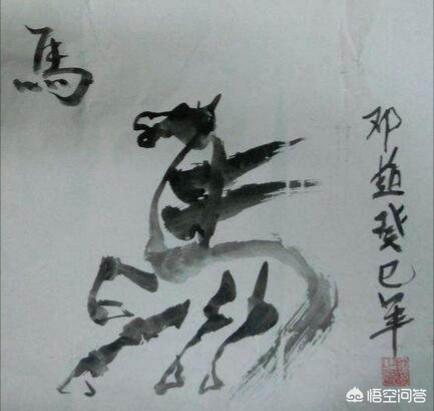 馬
邓癸巳年
悟空问答